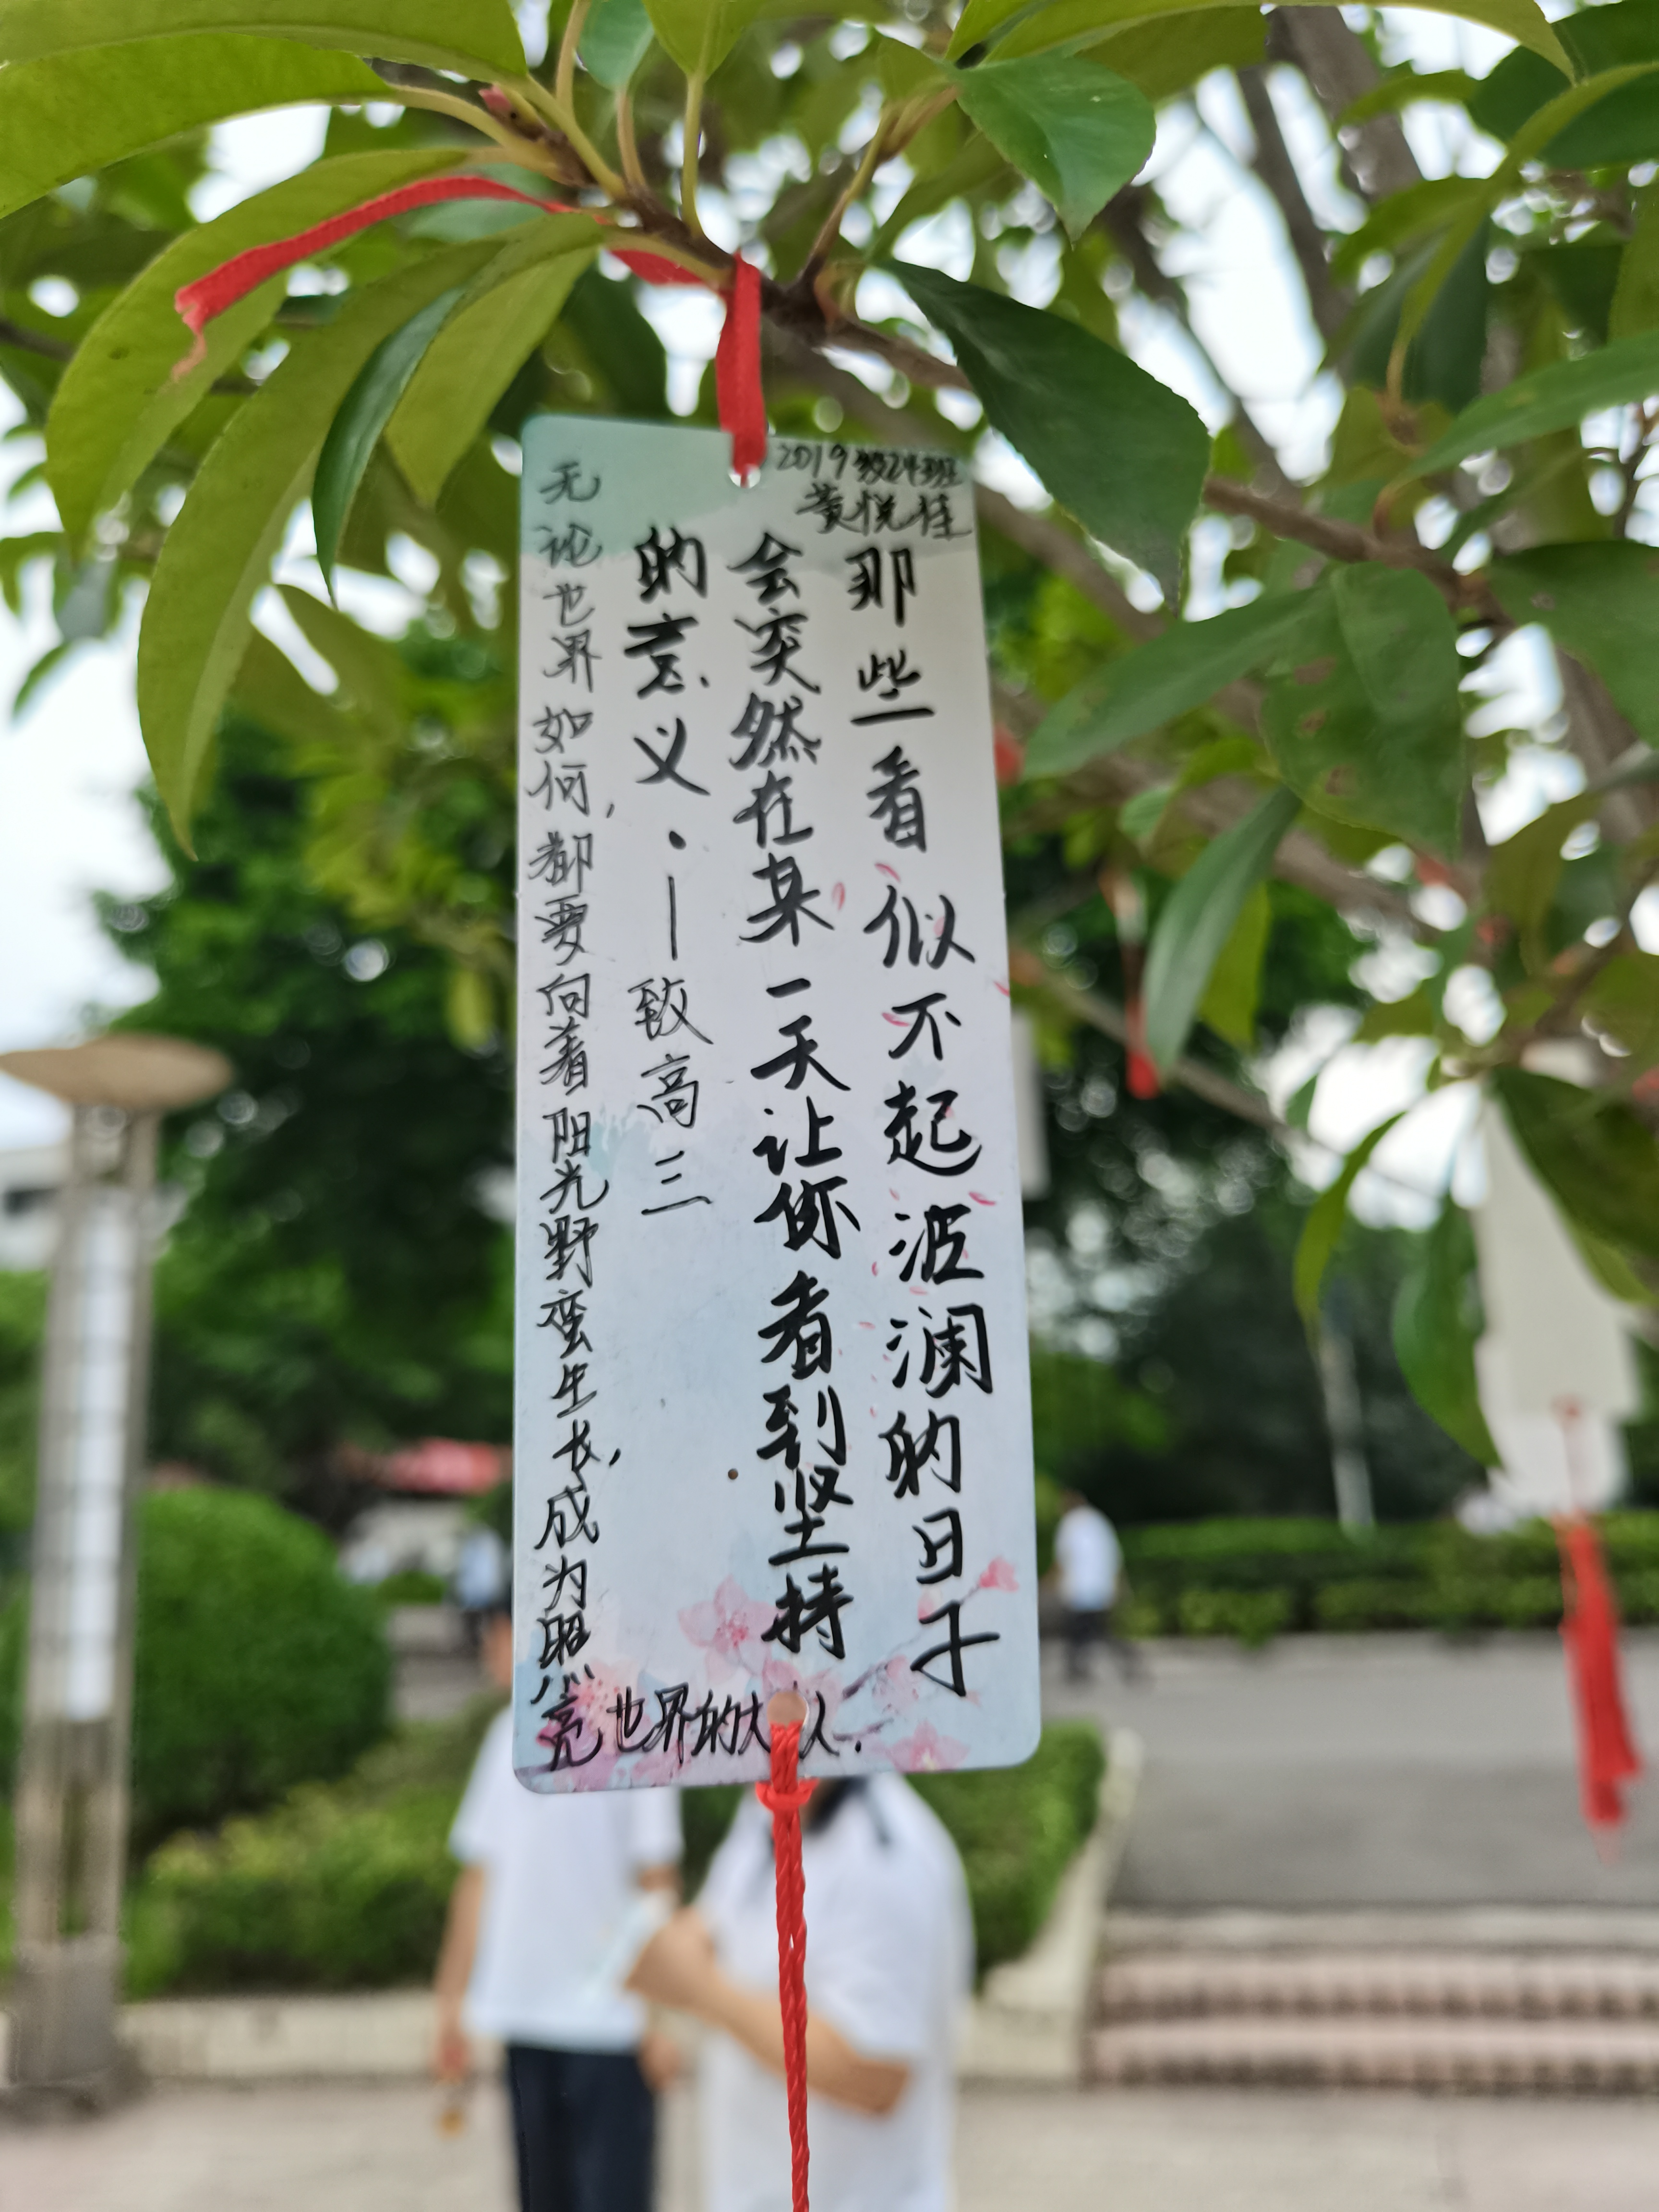 2019级24班
黄悦佳
那些看似不起波澜的日子
会突然在某一天让你看到坚持
的意义.—致高三
无论世界如何,都要向着阳光野蛮生长,成为照亮
世界的大人.